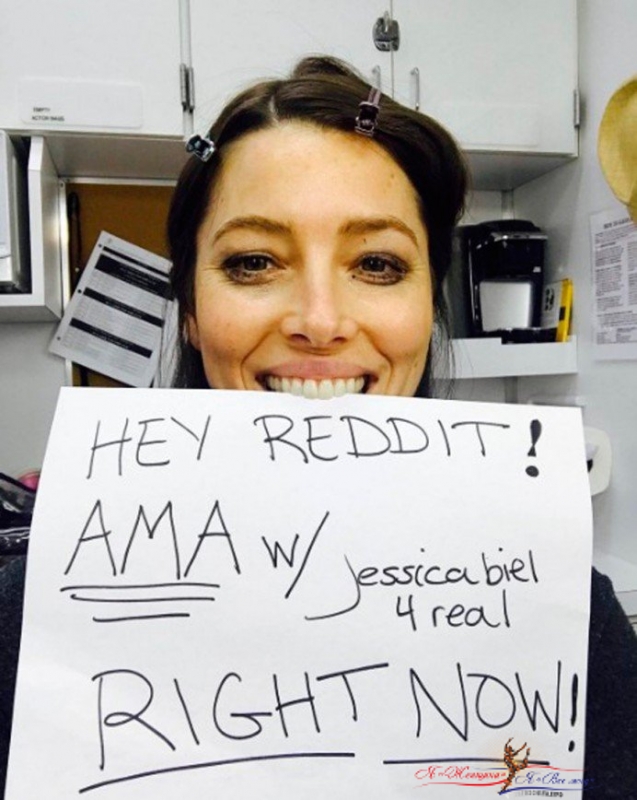 EMPTY
HEY REDDIT!
AMA W/ Jessica biel
4 real
RIGHT NOW!